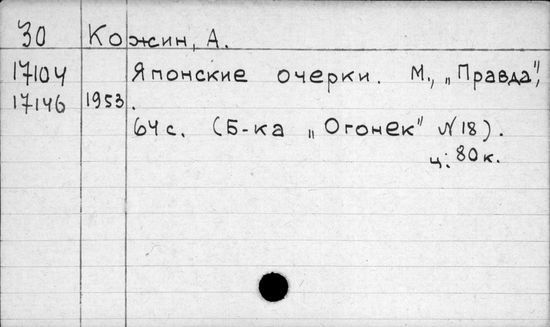 30 Кожин, А.
17104 Японские очерки. М., „Правда",
17146 1953.
64 с. (Б-ка „Огонек" N 18).
ц. 80 к.